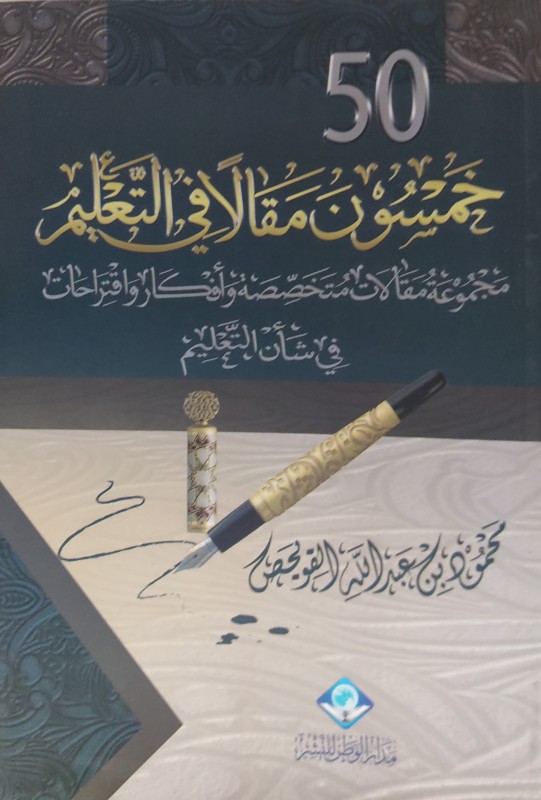 50
خَمْسُونَ مَقَالًا فِي التَّعْلِيمِ
مَجْمُوعَة مَقَالَات مُتَخَصِّصَة وَأَفْكَار وَاقْتِرَاحَات
فِي شَأْنِ التَّعْلِيمِ
محمود بن عبد الله القويحص
مدار الوطن للنشر